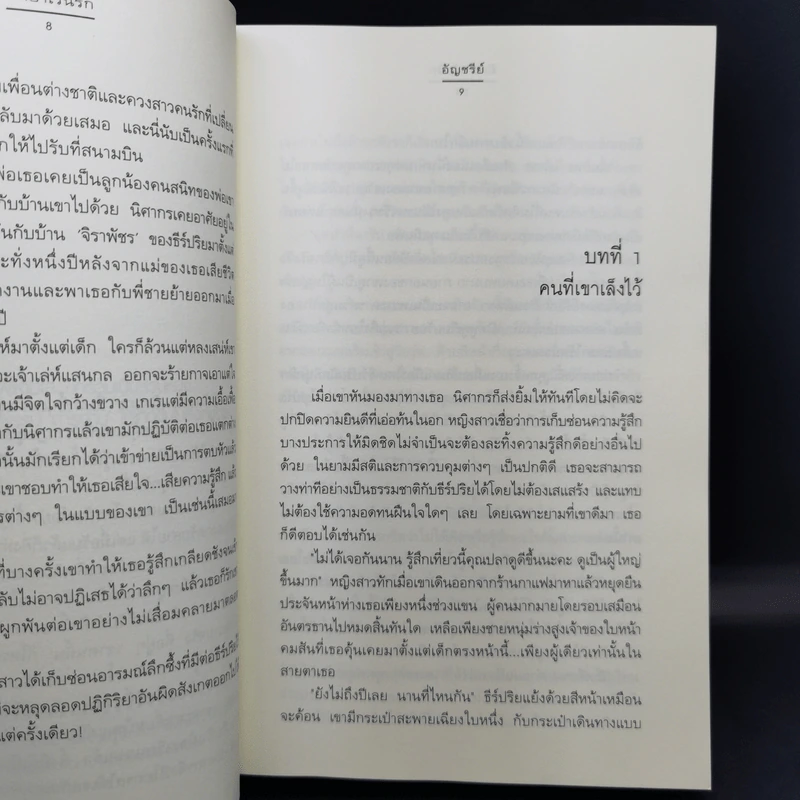 8
เพื่อนต่างชาติและควงสาวคนรักที่เปลี่ยน
ลับมาด้วยเสมอ และนี่นับเป็นครั้งแรกที่
กให้ไปรับที่สนามบิน
พ่อเธอเคยเป็นลูกน้องคนสนิทของพ่อเขา
กับบ้านเขาไปด้วย นิศากรเคยอาศัยอยู่ใน
นกับบ้าน 'จิราพัชร' ของธีร์ปริยมาตั้งแต่
ะทั่งหนึ่งปีหลังจากแม่ของเธอเสียชีวิต
างานและพาเธอกับพี่ชายย้ายออกมาเมื่อ
ปี
ห์มาตั้งแต่เด็ก ใครก็ล้วนแต่หลงเสน่ห์เขา
ะเจ้าเล่ห์แสนกล ออกจะร้ายกาจเอาแต่ใจ
นมีจิตใจกว้างขวาง เกเรแต่มีความเอื้อเฟื้อ
ากับนิศากรแล้วเขามักปฏิบัติต่อเธอแตกต่าง
านั้นมักเรียกได้ว่าเข้าข่ายเป็นการตบหัวแล้ว
เขาชอบทำให้เธอเสียใจ...เสียความรู้สึก แล้ว
รต่างๆ ในแบบของเขา เป็นเช่นนี้เสมอมา
ที่บางครั้งเขาทำให้เธอรู้สึกเกลียดชังจน
ลับไม่อาจปฏิเสธได้ว่าลึกๆ แล้วเธอก็รัก
ผูกพันต่อเขาอย่างไม่เสื่อมคลายมาตลอด
สาวได้เก็บซ่อนอารมณ์ลึกซึ้งที่มีต่อธีร์ปริยไว้
ที่จะหลุดลอดปฏิกิริยาอันผิดสังเกตออกไปให้
แต่ครั้งเดียว!
อัญชรีย์
9
บทที่ 1
คนที่เขาเล็งไว้
เมื่อเขาหันมองมาทางเธอ นิศากรก็ส่งยิ้มให้ทันทีโดยไม่คิดจะ
ปกปิดความยินดีที่เอ่อท้นในอก หญิงสาวเชื่อว่าการเก็บซ่อนความรู้สึก
บางประการให้มิดชิดไม่จำเป็นจะต้องละทิ้งความรู้สึกดีอย่างอื่นไป
ด้วย ในยามมีสติและการควบคุมต่างๆ เป็นปกติดี เธอจะสามารถ
วางท่าทีอย่างเป็นธรรมชาติกับธีร์ปริยได้โดยไม่ต้องเสแสร้ง และแทบ
ไม่ต้องใช้ความอดทนฝืนใจใดๆ เลย โดยเฉพาะยามที่เขาดีมา เธอ
ก็ดีตอบได้เช่นกัน
"ไม่ได้เจอกันนาน รู้สึกเที่ยวนี้คุณปลาดูดีขึ้นนะคะ ดูเป็นผู้ใหญ่
ขึ้นมาก" หญิงสาวทักเมื่อเขาเดินออกจากร้านกาแฟมาหาแล้วหยุดยืน
ประจันหน้าห่างเธอเพียงหนึ่งช่วงแขน ผู้คนมากมายโดยรอบเสมือน
อันตรธานไปหมดสิ้นทันใด เหลือเพียงชายหนุ่มร่างสูงเจ้าของใบหน้า
คมสันที่เธอคุ้นเคยมาตั้งแต่เด็กตรงหน้านี้...เพียงผู้เดียวเท่านั้นใน
สายตาเธอ
"ยังไม่ถึงปีเลย นานที่ไหนกัน" ธีร์ปริยแย้งด้วยสีหน้าเหมือน
จะค้อน เขามีกระเป๋าสะพายเฉียงใบหนึ่ง กับกระเป๋าเดินทางแบบ